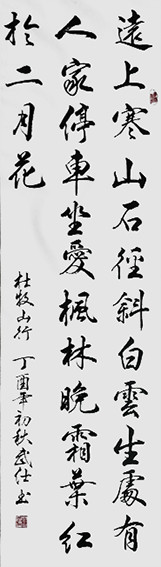 遠上寒山石徑斜白雲生處有
人家停車坐愛楓林晚霜葉紅
於二月花
杜牧山行 丁酉年初秋武仕書